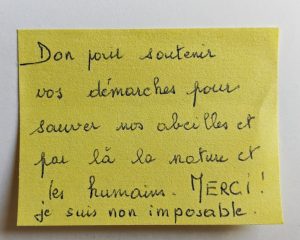 Don pour soutenir
vos démarches pour
sauver nos abeilles et
par là la nature et
les humains. MERCI !
je suis non imposable.